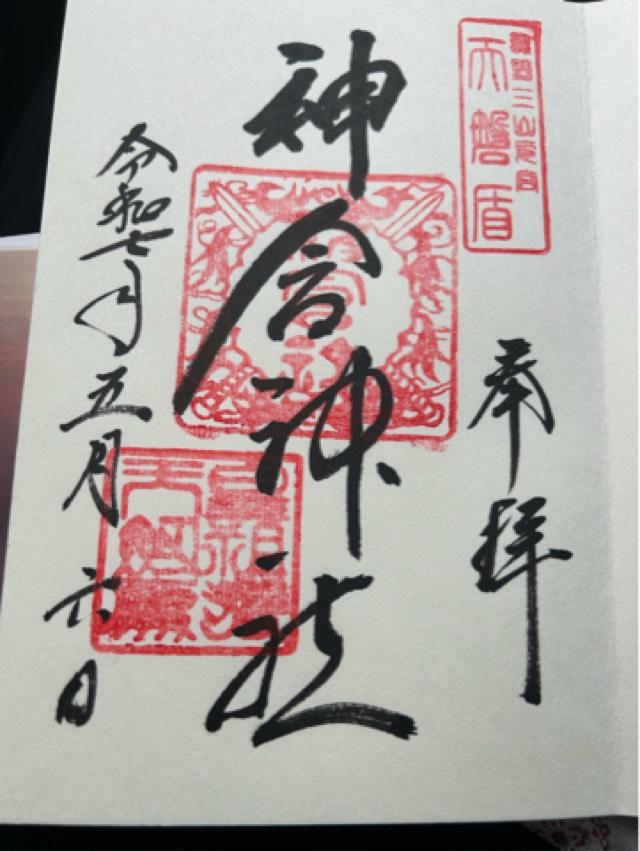 熊野三山元宮
天磐盾
奉拝
神倉神社
令和七年五月六日